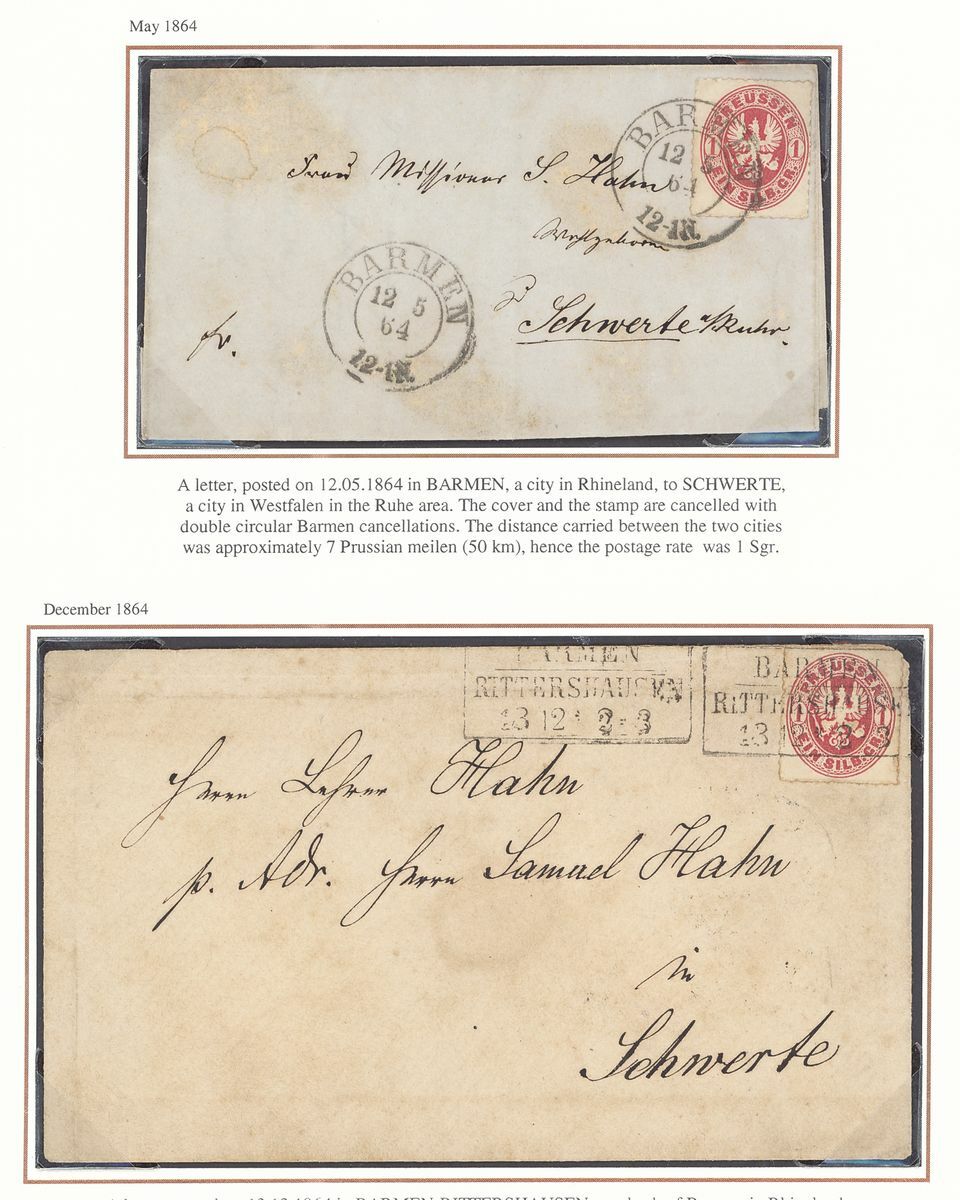 May 1864
PREUSSEN
1 1
EIN SILB. GR.
BAR
12 5
64
12-1N.
Frau Missionar S. Hahn
Wohlgeboren
BARMEN
12 5
64
12-1N.
Schwerte a/Ruhr.
fr.
A letter, posted on 12.05.1864 in BARMEN, a city in Rhineland, to SCHWERTE,
a city in Westfalen in the Ruhe area. The cover and the stamp are cancelled with
double circular Barmen cancellations. The distance carried between the two cities
was approximately 7 Prussian meilen (50 km), hence the postage rate was 1 Sgr.
December 1864
BARMEN
RITTERSHAUSEN
13 12 2-3
BARMEN
RITTERSHAUSE
13
PREUSSEN
1 1
EIN SILB. GR.
Herrn Lehrer Hahn
p. Adr. Herrn Samuel Hahn
in
Schwerte
13.12.1864 in BARMEN RITTERSHAUSEN